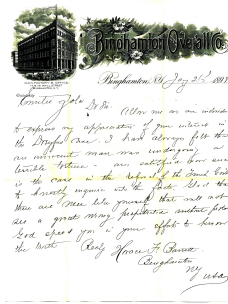 Binghamton Overall Co.
Binghamton, N.Y. Jany 26 189
Emile Zola Dr Sir
Allow me as an individual
to express my appreciation of your interest in
the Dreyfus case. I have always felt that
an innocent man was undergoing a
terrible torture
is the case in the refusal of the French Govt
to honestly inquire into the facts. God
there are men like yourself that will not
see a great wrong perpetrated without
God speed you in your efforts to know
the truth Resp Horace F. Barrett
Binghamton
NY
USA